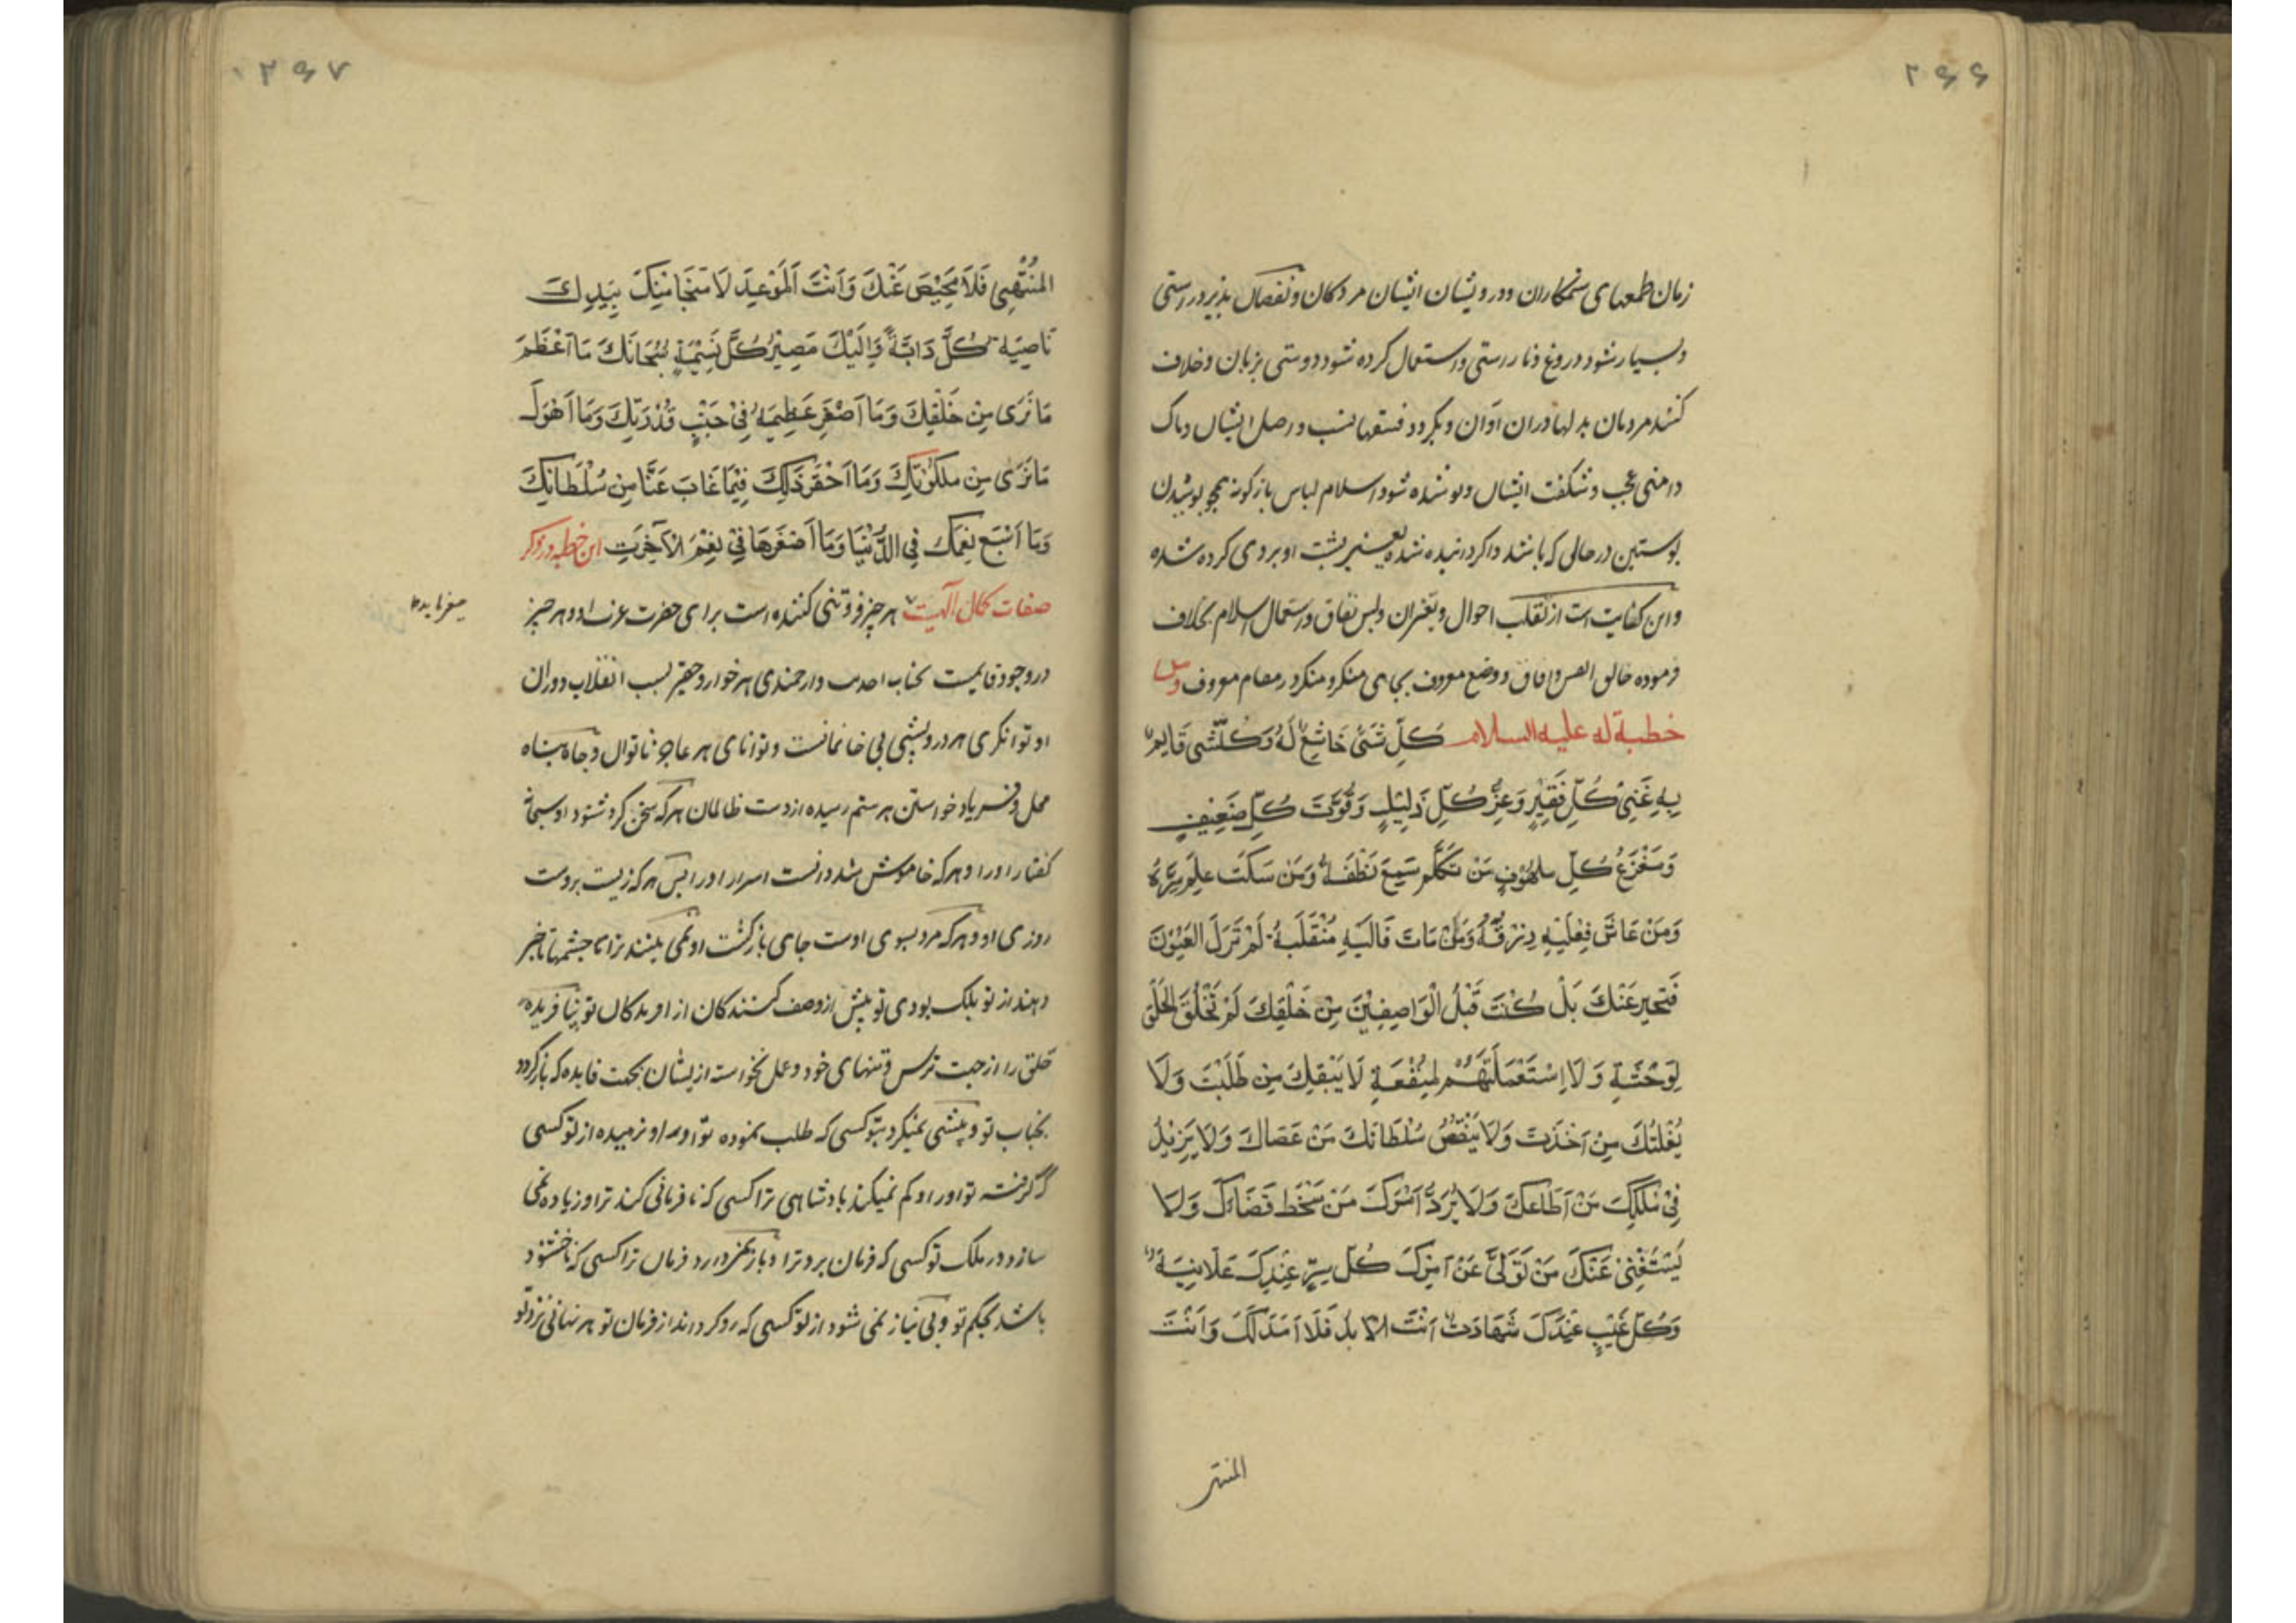 ۲۶۶
زمان طمعهای ستمکاران و درویشان ایشان مردکان و نقصان پذیرد راستی
و بسیار شود دروغ و ناراستی و استعمال کرده شود دوستی بزبان و خلاف
کنند مردمان بدلها دران اوان و بکردد فسقها نسب در اصل ایشان و پاک
دامنی عجب و شکفت ایشان و پوشیده شود اسلام لباس بازکونه همچو پوشیدن
پوستین در حالی که باشد واکردانیده شده یعنی پشت او بروی کرده شده
و این کفایت است از تقلب احوال و تغیران و لبس نفاق و استعمال اسلام بخلاف
فرموده خالق انفس و افاق و وضع معروف بجای منکر و منکر در مقام معروف ومن
خطبة له علیه السلام کُلِّ شَیْءٍ خَاشِعٌ لَهُ وَکُلّشی قَایِمٌ
بِهِ غَنِیُ کُلِّ فَقِیْرٍ وَعِزُّ کُلِّ ذَلِیْلٍ وَقُوَّتَ کُلِّ ضَعِیْفٍ
وَمَفْزَعُ کُلِّ مَلهُوْفٍ مَنْ تَکَلَّمَ سَمِعَ نَطْقَهُ وَمَنْ سَکَتَ عَلِمَ سِرَّهُ
وَمَنْ عَاشَ فَعَلَیْهِ رِزْقُهُ وَمَنْ مَاتَ فَالَیْهِ مُنْقَلَبهُ لَمْ تَرَکَ الْعُیُوْنَ
فَتخبر عَنْکَ بَلْ کُنْتَ قَبْلَ الْوَاصِفِیْنَ مِنْ خَلْقِکَ لَمْ تَخْلُقِ الْخَلْقَ
لِوَحْشَةٍ وَلَا اِسْتَعْمَلْتَهُمْ لِمَنْفَعَةٍ لَا یَسْبِقُکَ مِنْ طَلَبْتَ وَلَا
یُفْلِتُکَ مِنْ اَخَذْتَ وَلَا یَنْقُصُ سُلْطَانَکَ مَنْ عَصَاکَ وَلَا یَزِیْدُ
فِیْ مُلْکِکَ مَنْ اَطَاعَکَ وَلَا یُرَدُّ اَمْرَکَ مَنْ سَخَطَ قَضَاءَکَ وَلَا
یَسْتَغْنِیْ عَنْکَ مَنْ تَوَلّٰی عَنْ اَمْرِکَ کُلُّ سِرٍّ عِنْدِکَ عَلَانِیَةٌ
وَکُلُّ غَیْبٍ عِنْدَکَ شَهَادَتٌ اَنْتَ الاَبَدُ فَلَا اَمَدَ لَکَ وَاَنْتَ
المنتهی
۲۶۷
المُنْتَهٰی فَلَا مَحِیْصَ عَنْکَ وَاَنْتَ الْمَوْعِدَ لَا مَنْجَا مِنْکَ بِیَدِکَ
نَاصِیَة کُلِّ دَابَّةٍ وَاِلَیْکَ مَصِیْرُ کُلِّ نَسَمَةٍ سُبْحَانَکَ مَا اَعْظَمَ
مَا نَرٰی مِنْ خَلْقِکَ وَمَا اَصْغَرَ عَظِیْمَهُ فِیْ جَنْبِ قُدْرَتِکَ وَمَا اَهْوَلَ
مَا نَرٰی مِن مَلَکُوْتِکَ وَمَا اَحْقَرَ ذَلِکَ فِیْمَا غَابَ عَنَّا مِنْ سُلْطَانِکَ
وَمَا اَسْبَغَ نِعَمَکَ فِی الدُّنْیَا وَمَا اَصْغَرَهَا فِیْ نِعَمِ الْاٰخِرَتِ این خطبه در ذکر
صفات کمال الٰهیت هر چیز فروتنی کننده است برای حضرت عزت او و هر چیز
میفرماید
در وجود قایمست بجناب احدیت و ارجمندی هر خوار و حقیر بسبب انقلاب دوران
او توانکری هر درویشی بی خانمانست و توانای هر عاجز ناتوان و جاه پناه
محل و فریاد خواستن هر ستم رسیده از دست ظالمان هرکه سخن کرد شنود او سبحانه
کفتار او را و هرکه خاموش شد دانست اسرار او را پس هرکه زیست بروست
روزی او و هرکه مرد بسوی اوست جای بازکشت او نمی بینند ترا چشمها تا خبر
دهند از تو بلک بودی تو پیش از وصف کنندکان از افریدکان تو نیافریده
خلق را از جهت ترس و تنهای خود و عمل نخواسته ازیشان بجهت فایده که بازکردد
بجناب تو و پیشی نمیکرد بتو کسی که طلب نموده تو او را و نرهیده از تو کسی
که کرفته تو او را و کم نمیکند بادشاهی ترا کسی که نافرمانی کند ترا و زیاده نمی
سازد در ملک تو کسی که فرمان برد ترا و باز نمیردارد فرمان ترا کسی که ناخشنود
باشد بحکم تو و بی نیاز نمی شود از تو کسی که رو کرداند از فرمان تو هر نهانی نزد تو